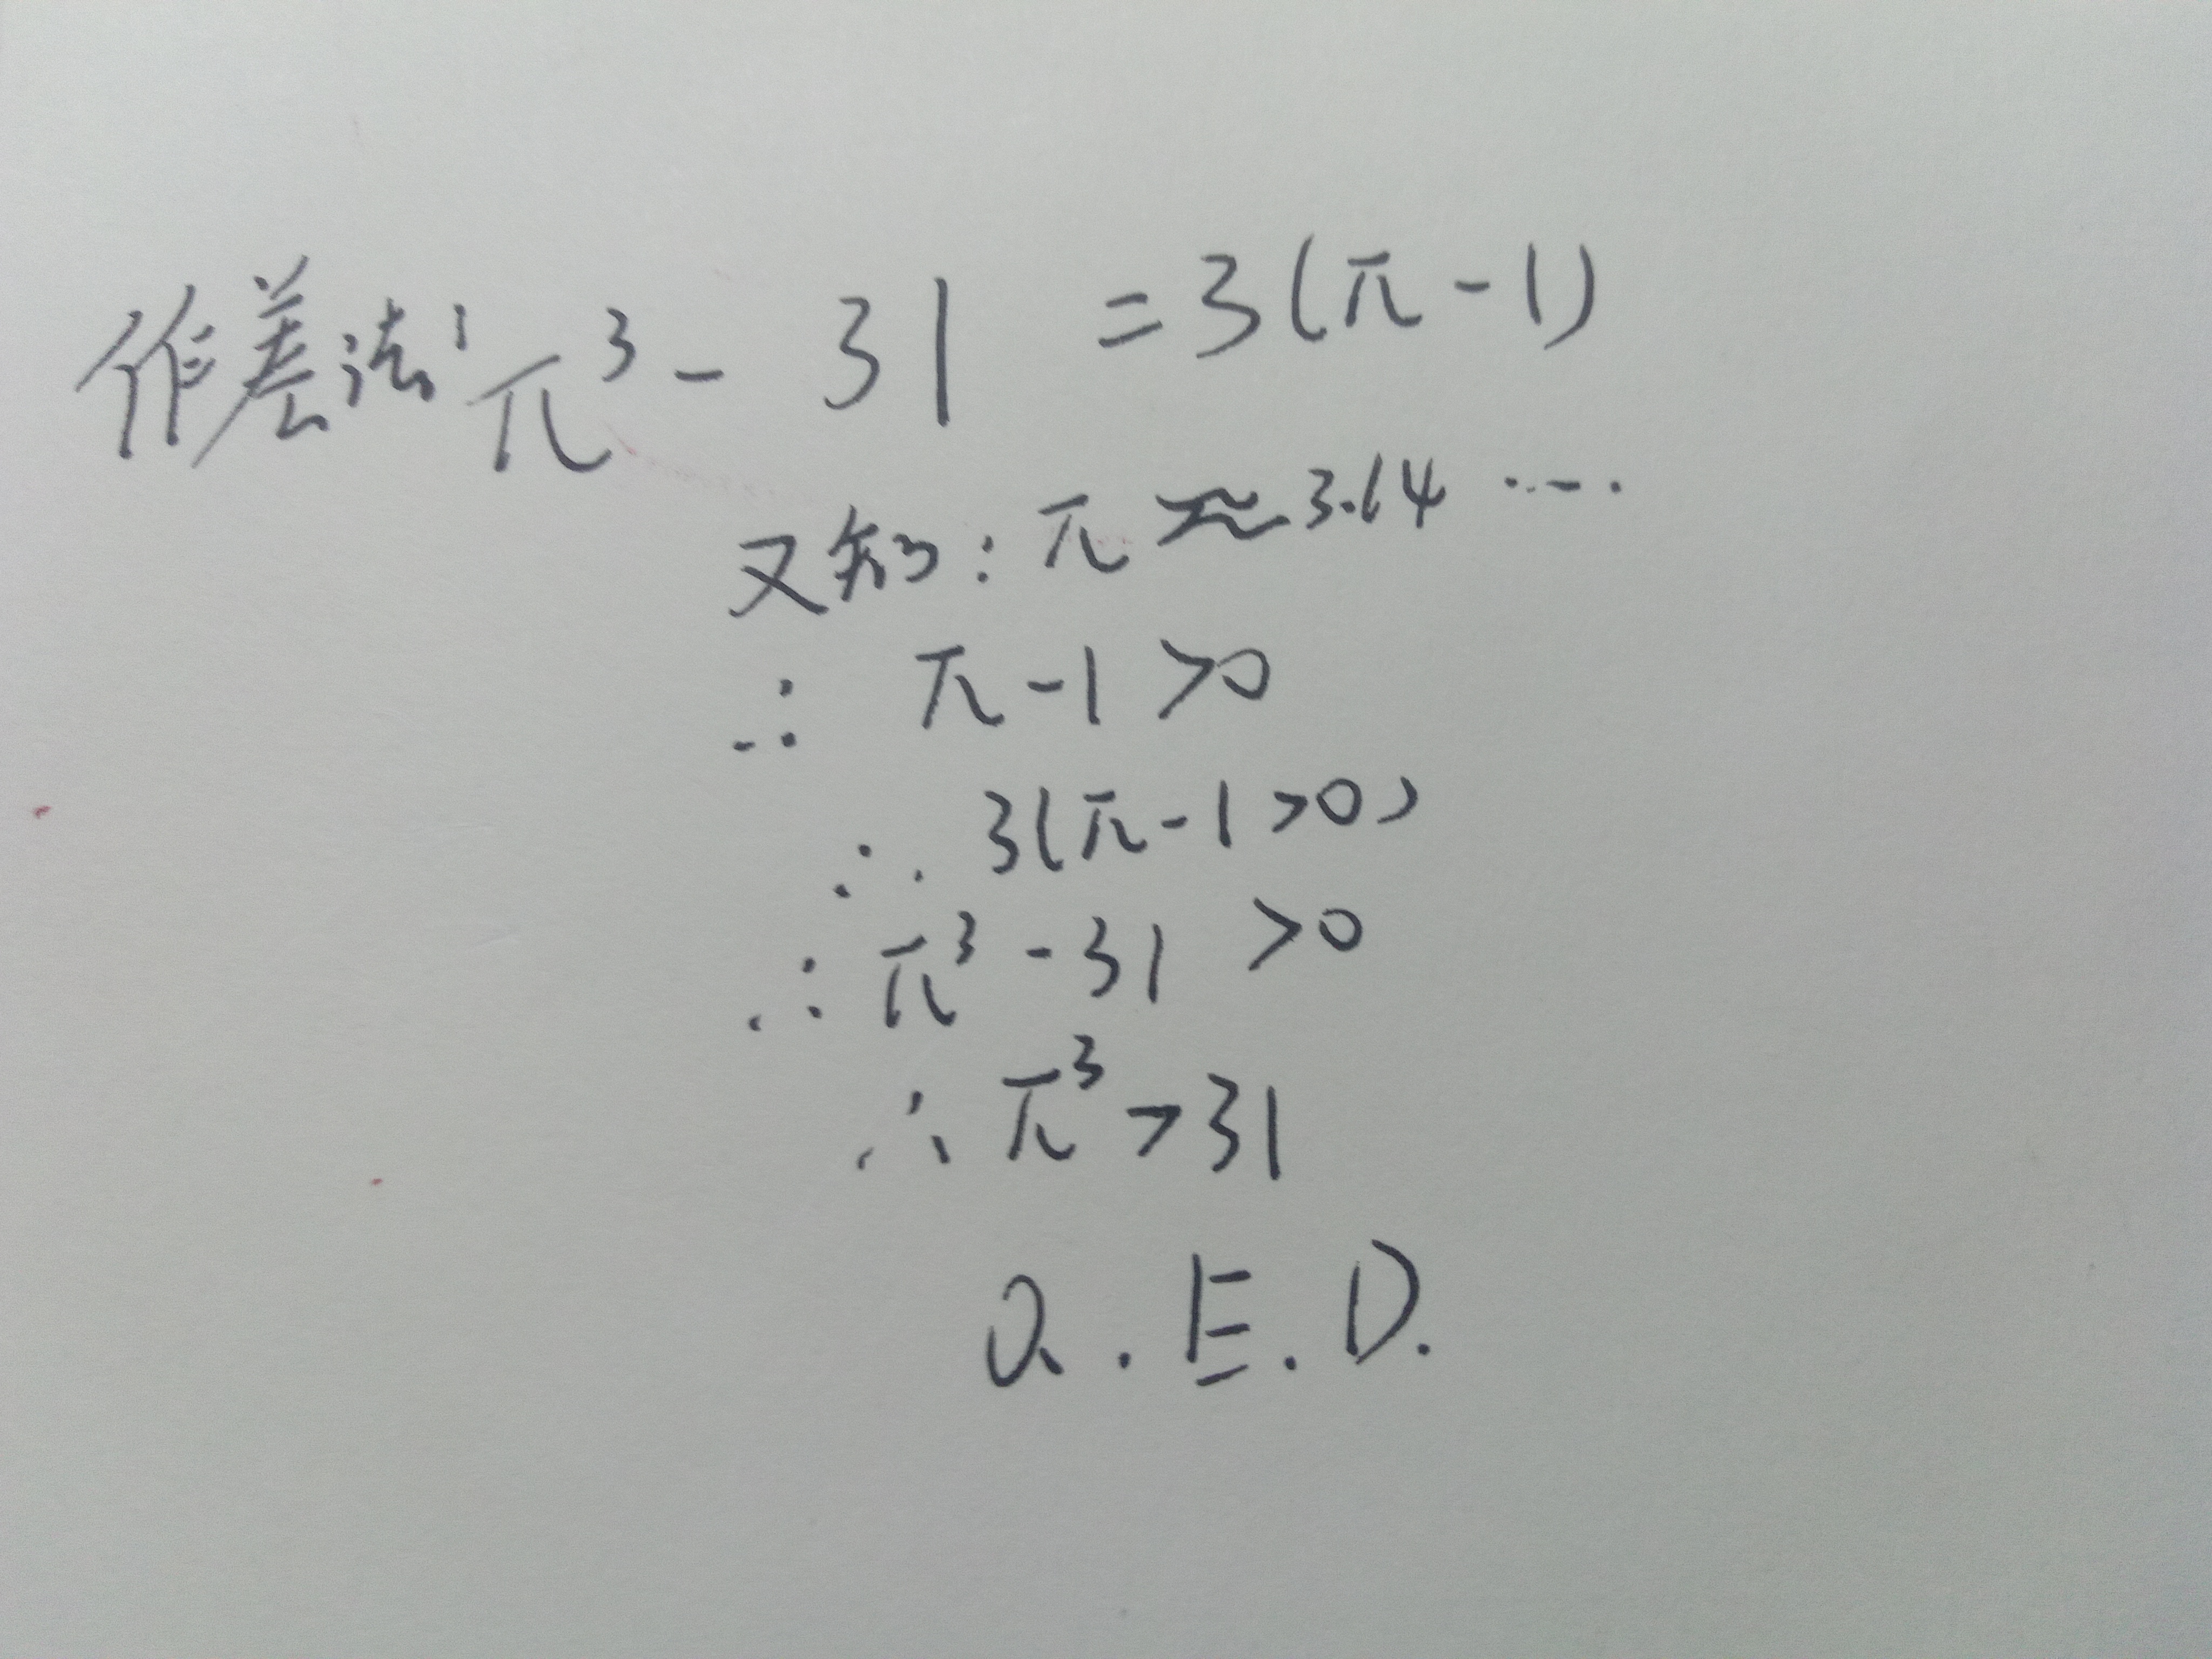 作差法: π³ - 31 = 3(π - 1)
又知: π ≈ 3.14 ....
∴ π - 1 > 0
∴ 3(π - 1 > 0)
∴ π³ - 31 > 0
∴ π³ > 31
Q.E.D.